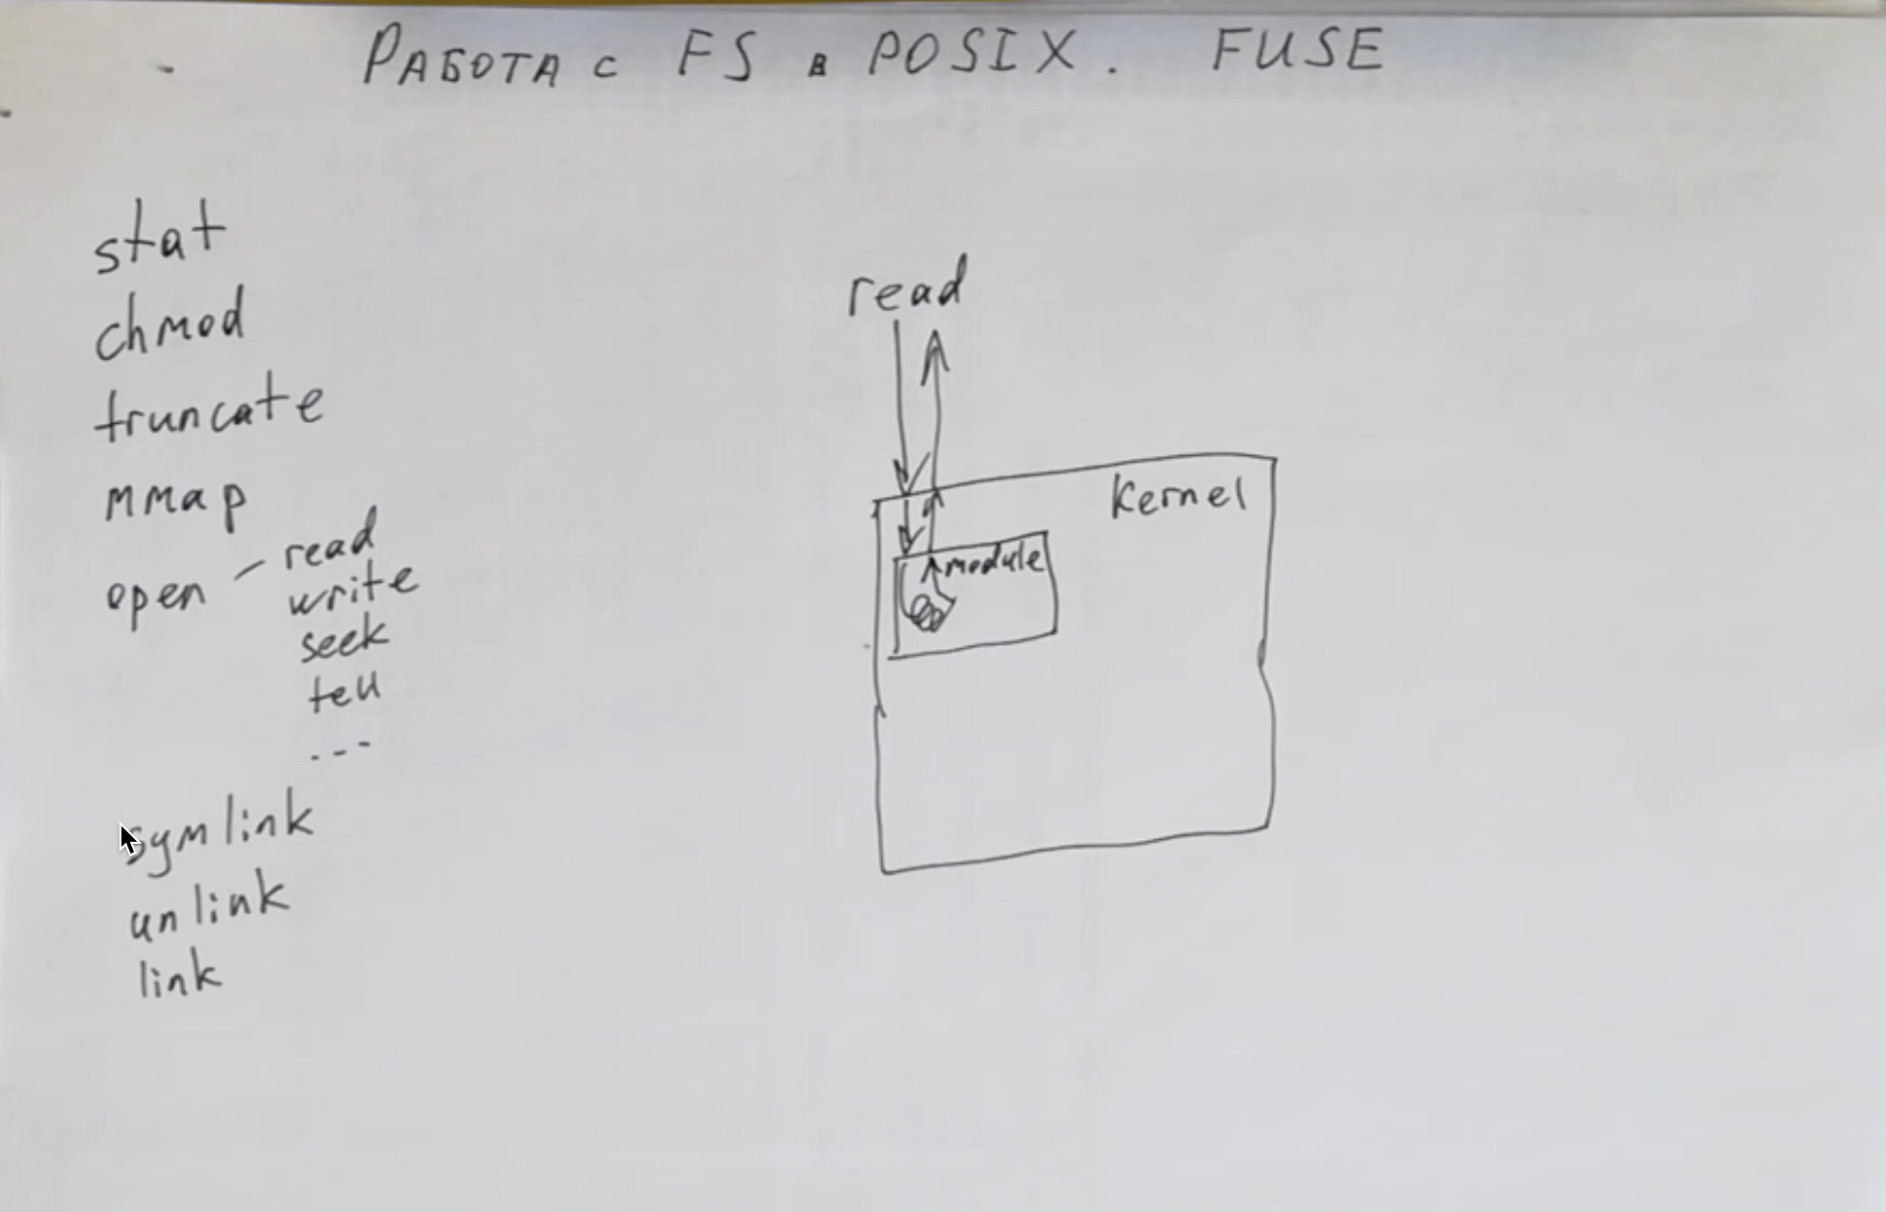 РАБОТА с FS в POSIX. FUSE
stat
chmod
truncate
mmap
open — read
write
seek
tell
---
symlink
unlink
link
read
Kernel
module